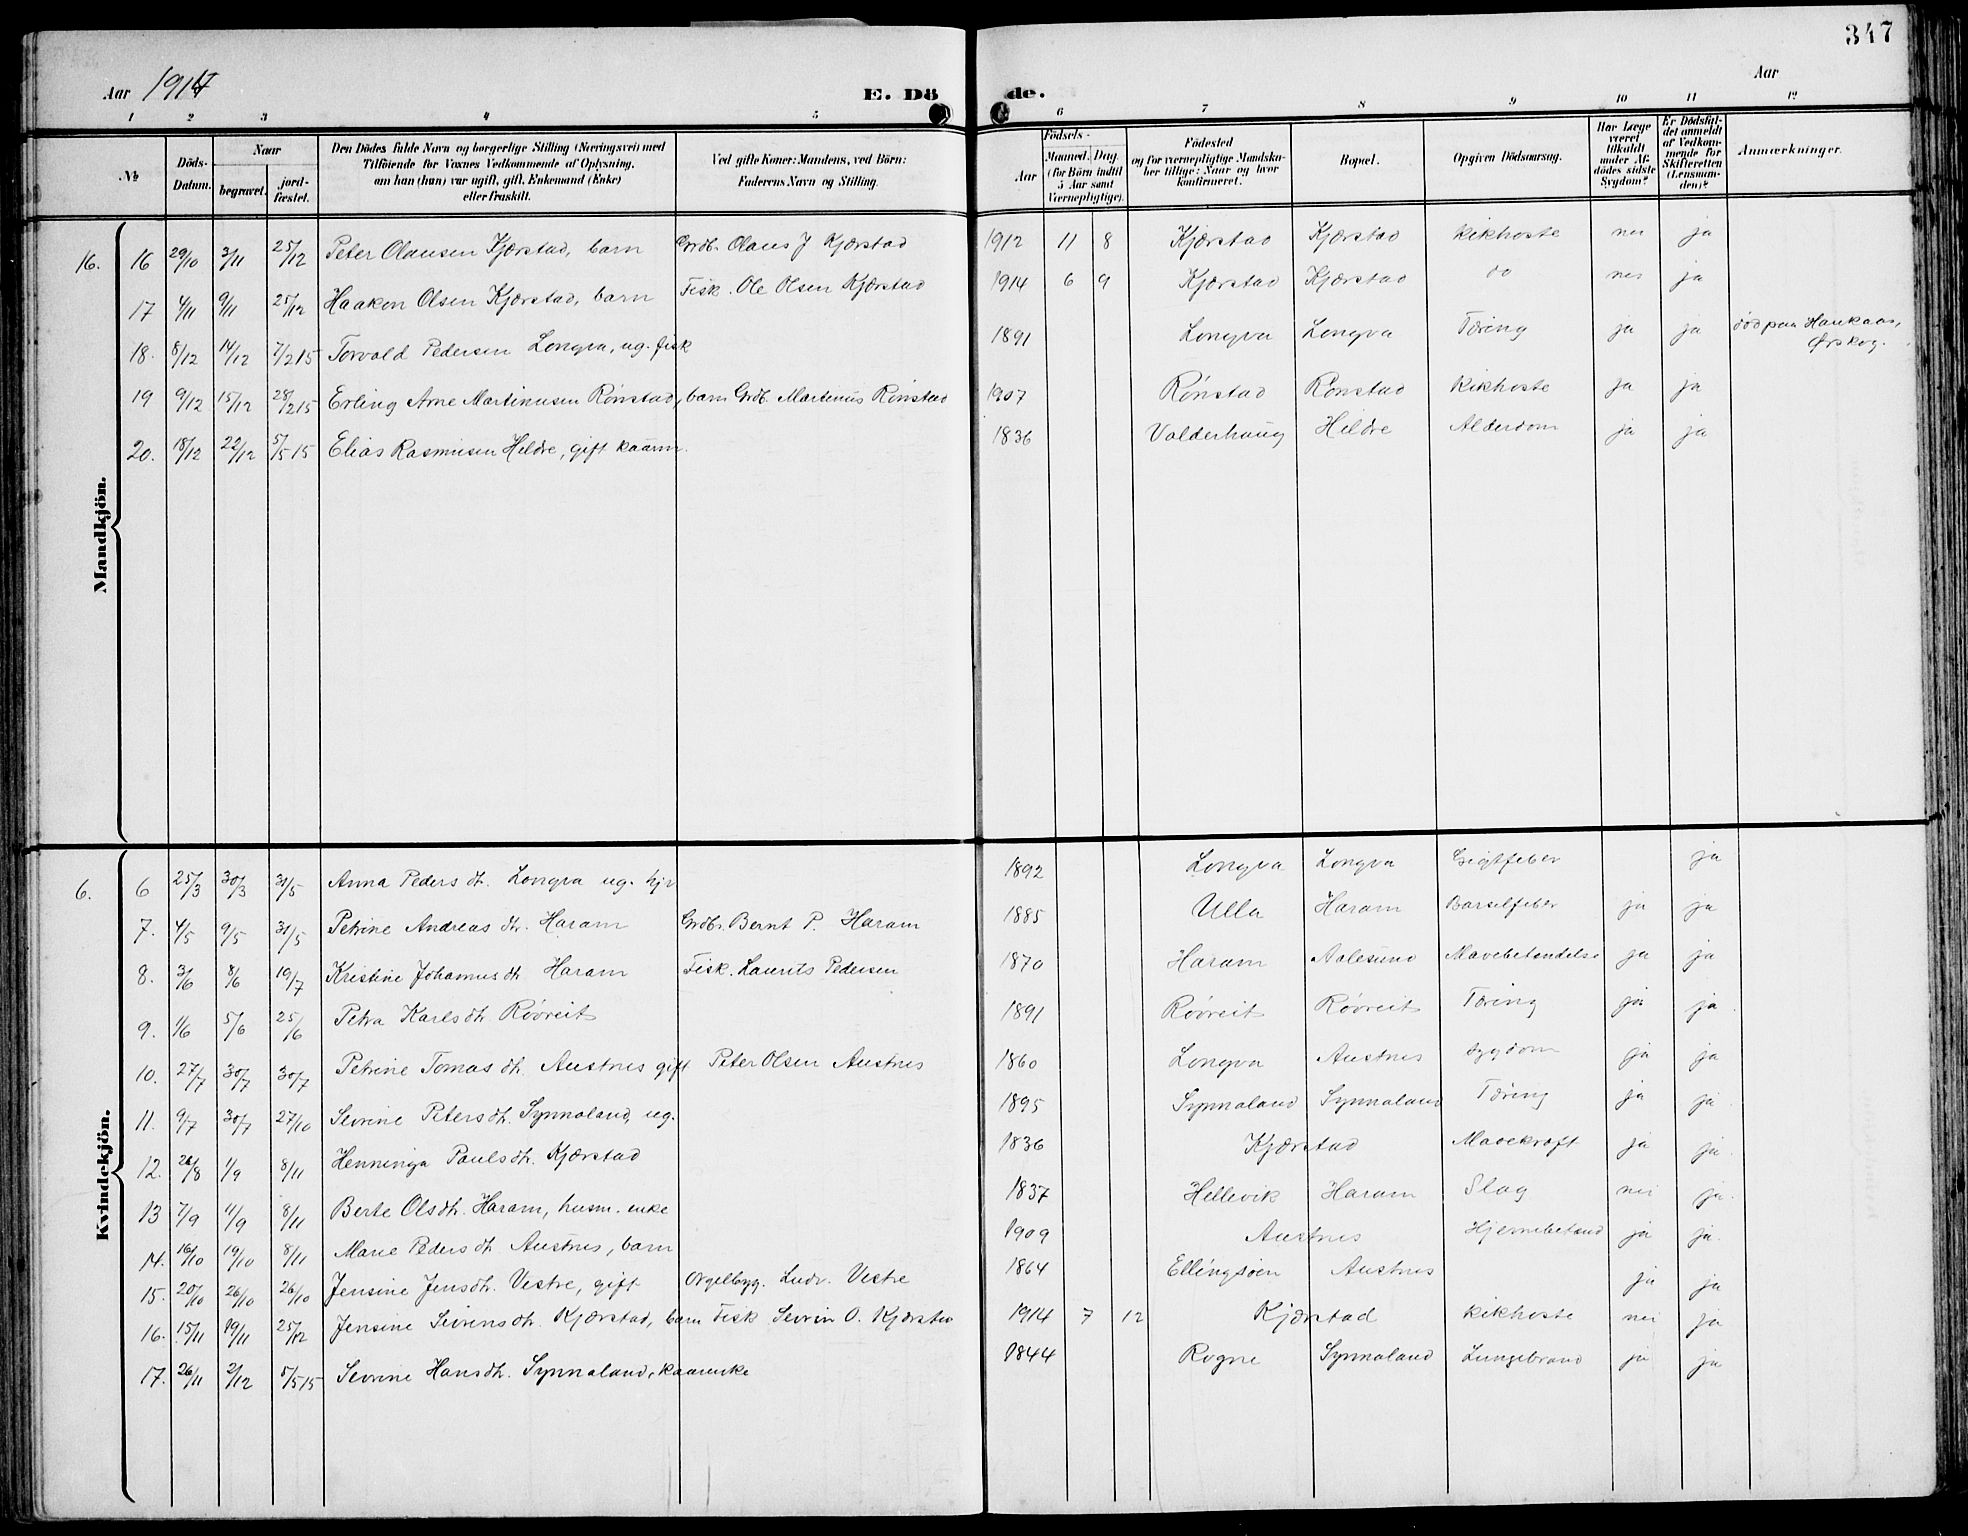 347
Aar 1914 E. Dö de. Aar
1 2 3 4 5 6 7 8 9 10 11 12
№ Döds-Datum. Naar begravet. jord-fæstet. Den Dödes fulde Navn og borgerlige Stilling (Næringsvei) med Tilföiende for Voxnes Vedkommende af Oplysning, om han (hun) var ugift, gift, Enkemand (Enke) eller fraskilt. Ved gifte Koner: Mandens, ved Börn: Faderens Navn og Stilling. Födsels- Aar Maaned. Dag. (for Börn indtil 5 Aar samt Værnepligtige). Födested og for værnepligtige Mandskaber tillige: Naar og hvor konfirmeret. Bopæl. Opgiven Dödsaarsag. Har Læge været tilkaldt under Afdödes sidste Sygdom? Er Dödsfaldet anmeldt af Vedkommende for Skifteretten (Lensmanden)? Anmærkninger.
Mandkjön.
16. 16 29/10 3/11 25/12 Peter Olausen Kjærstad, barn Grdb. Olaus J Kjærstad 1912 11 8 Kjærstad Kjærstad Kikhoste nei ja
17 4/11 9/11 25/12 Haakon Olsen Kjærstad, barn Fisk. Ole Olsen Kjærstad 1914 6 9 Kjærstad Kjærstad do nei ja
18. 8/12 14/12 7/2 15 Torvald Pedersen Longva, ug. fisk 1891 Longva Longva Tæring ja ja død paa Haukaas, Ørskog.
19 9/12 15/12 28/2 15 Erling Arne Martinusen Rønstad, barn Grdb. Martinus Rønstad 1907 Rønstad Rønstad Kikhoste ja ja
20. 18/12 22/12 5/5 15 Elias Rasmusen Hildre, gift kaarm. 1836 Valderhaug Hildre Alderdom ja ja
Kvindekjön.
6. 6 25/3 30/3 31/5 Anna Pedersdt. Longva ug. hjv 1892 Longva Longva Gigtfeber ja
7. 4/5 9/5 31/5 Petrine Andreasdtr. Haram Grdb. Bernt P. Haram 1885 Ulla Haram Barselfeber ja ja
8. 3/6 8/6 19/7 Kristine Johannusdt Haram Fisk. Laurits Pedersen 1870 Haram Aalesund Mavebetændelse ja ja
9. 1/6 5/6 25/6 Petra Karlsdtr Røvreit 1891 Røvreit Røvreit Tæring ja ja
10. 27/7 30/7 30/7 Petrine Tomasdt. Austnes gift Peter Olsen Austnes 1860 Longva Austnes sygdom ja ja
11. 9/7 30/7 27/10 Sevrine Petersdt. Synnaland, ug. 1895 Synnaland Synnaland Tæring ja ja
12. 26/8 1/9 8/11 Henninga Paulsdt. Kjærstad 1836 Kjærstad Mavekræft ja ja
13 7/9 11/9 8/11 Berte Olsdtr. Haram, husm. enke 1837 Hellevik Haram Slag nei ja
14. 16/10 19/10 8/11 Marie Pedersdt Austnes, barn 1909 Austnes Hjernebetænd ja ja
15. 20/10 26/10 26/10 Jensine Jensdtr. Vestre, gift Orgelbyg. Ludv. Vestre 1864 Ellingsøen Austnes ja ja
16. 15/11 19/11 25/12 Jensine Sevrinsdtr. Kjærstad, barn Fisk Sevrin O. Kjærstad 1914 7 12 Kjærstad Kikhoste nei ja
17. 26/11 2/12 5/5 15 Sevrine Hansdtr. Synnaland, kaarenke 1844 Rogne Synnaland Lungebrand ja ja